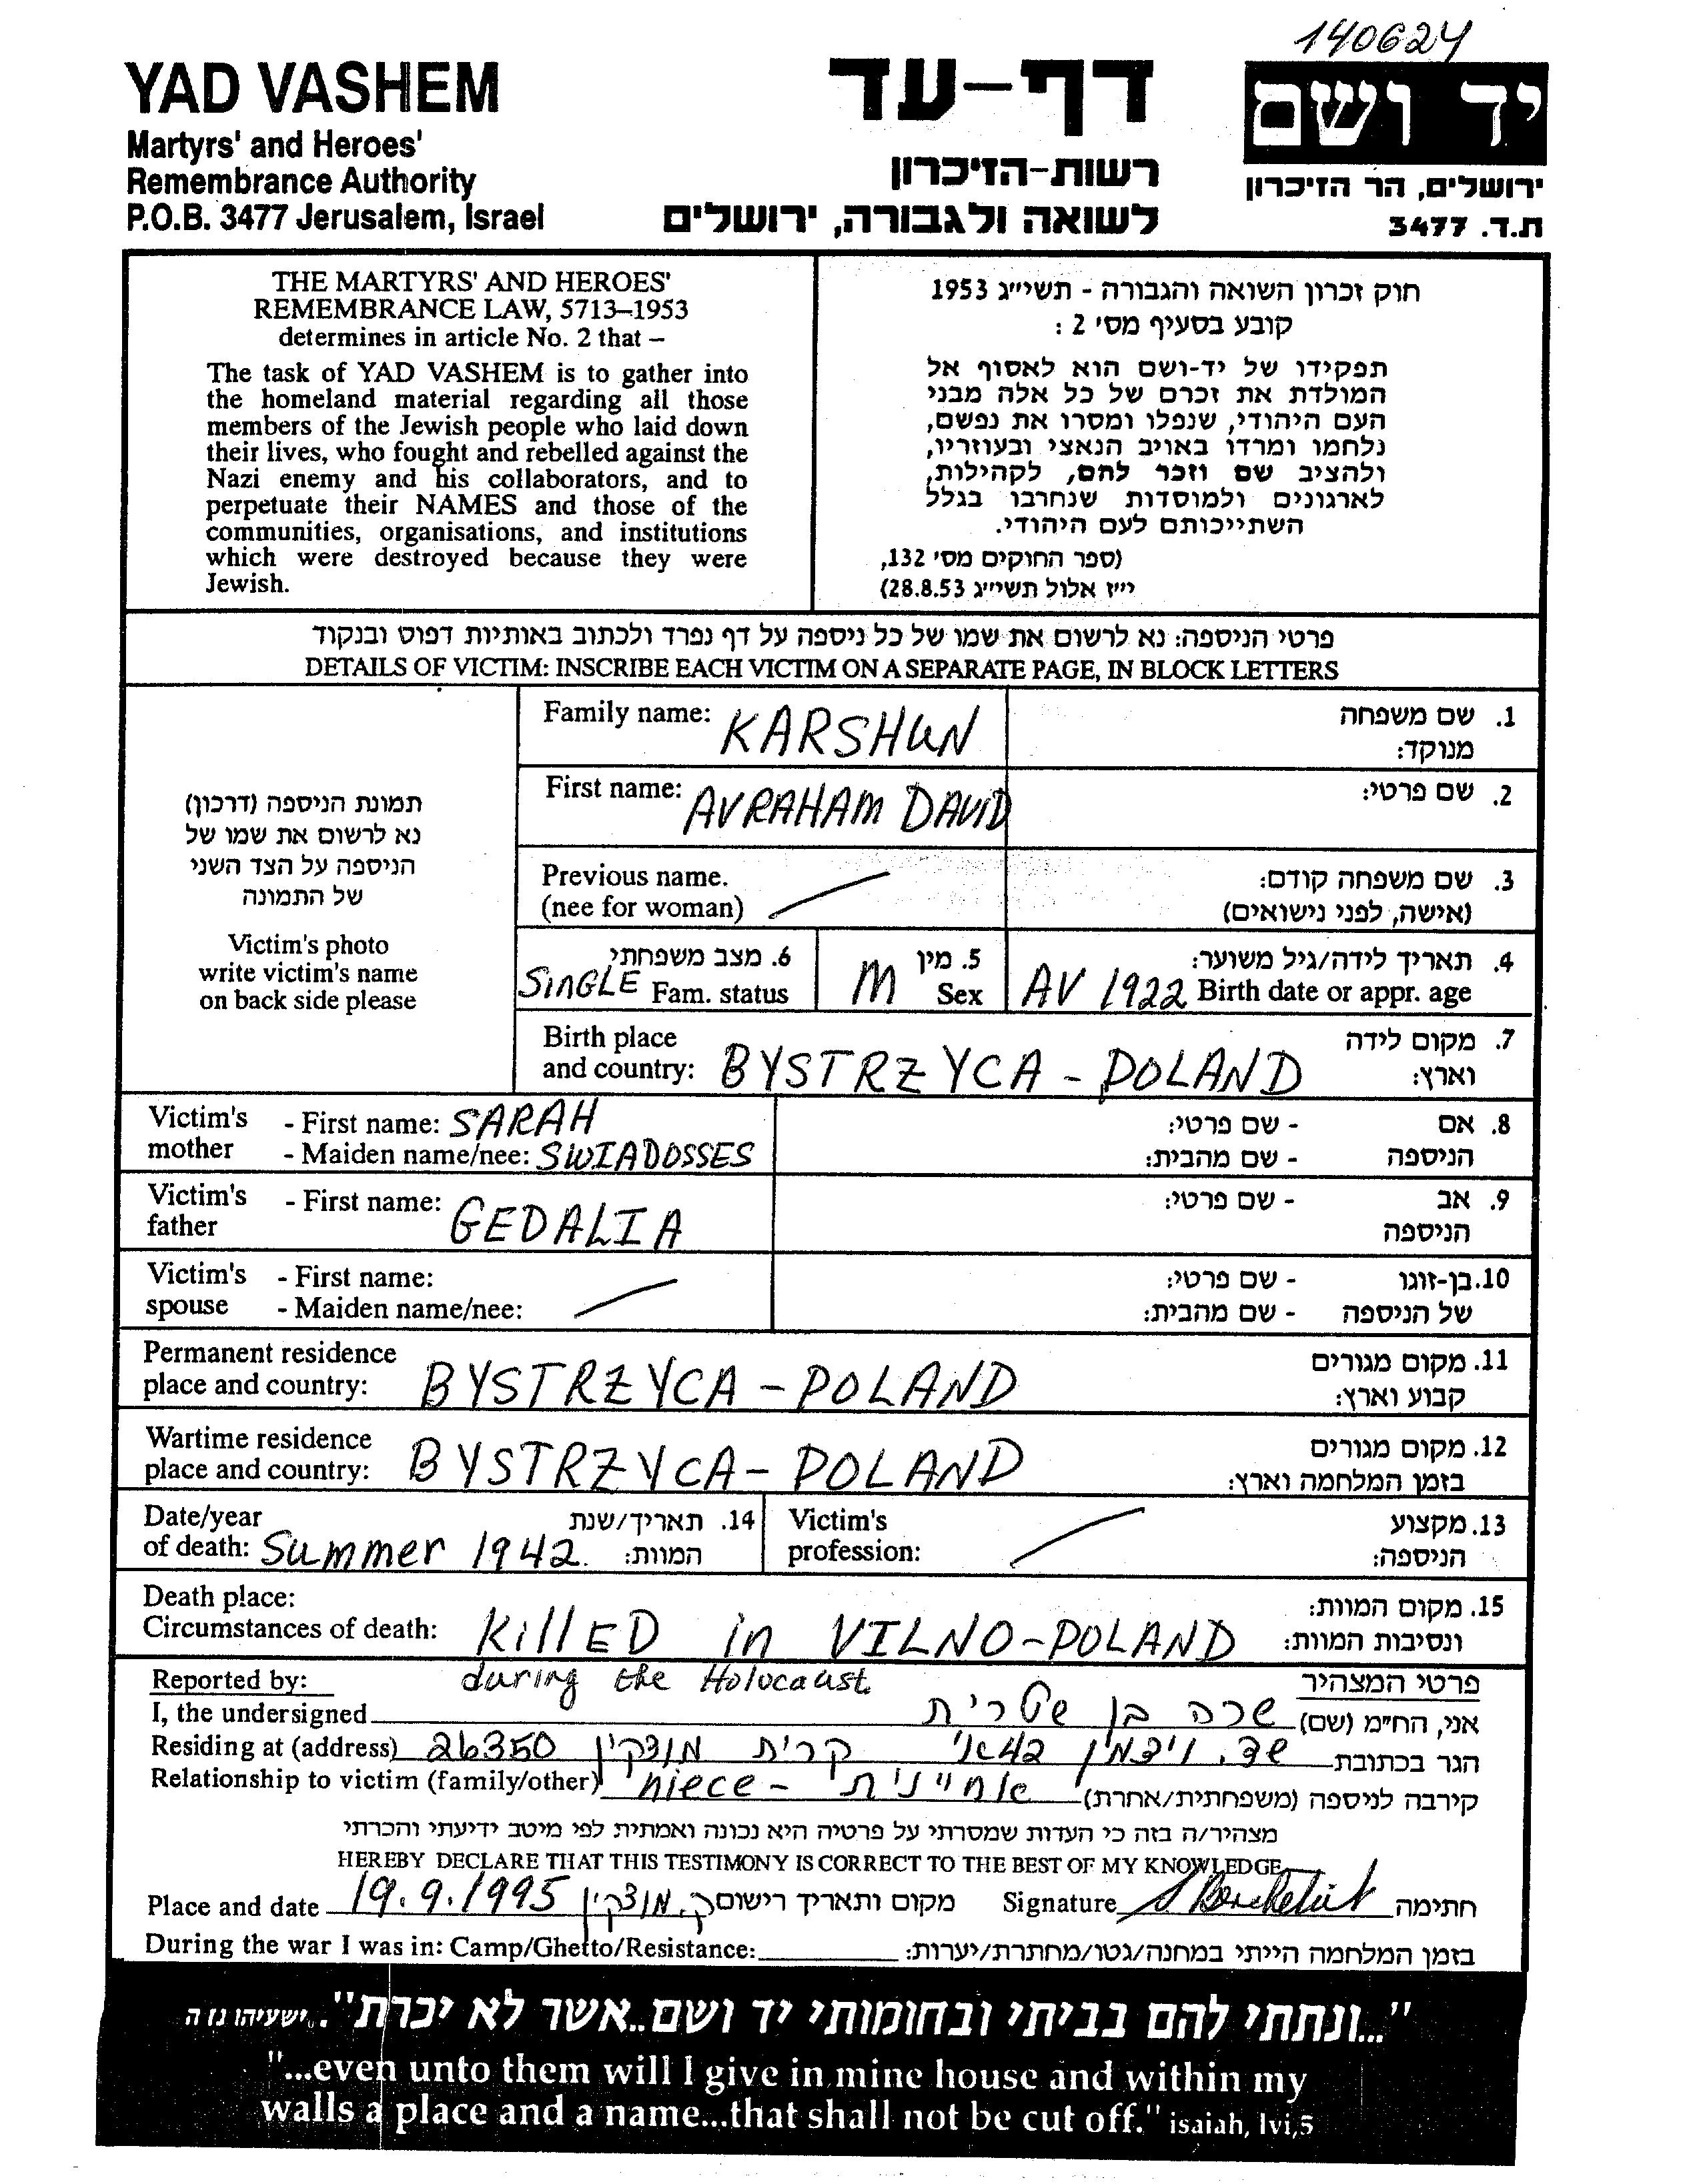 140624
YAD VASHEM
Martyrs' and Heroes'
Remembrance Authority
P.O.B. 3477 Jerusalem, Israel
דף-עד
רשות-הזיכרון
לשואה ולגבורה, ירושלים
יד ושם
ירושלים, הר הזיכרון
ת.ד. 3477
THE MARTYRS' AND HEROES'
REMEMBRANCE LAW, 5713–1953
determines in article No. 2 that –
The task of YAD VASHEM is to gather into
the homeland material regarding all those
members of the Jewish people who laid down
their lives, who fought and rebelled against the
Nazi enemy and his collaborators, and to
perpetuate their NAMES and those of the
communities, organisations, and institutions
which were destroyed because they were
Jewish.
חוק זכרון השואה והגבורה - תשי״ג 1953
קובע בסעיף מס׳ 2 :
תפקידו של יד-ושם הוא לאסוף אל
המולדת את זכרם של כל אלה מבני
העם היהודי, שנפלו ומסרו את נפשם,
נלחמו ומרדו באויב הנאצי ובעוזריו,
ולהציב שם וזכר להם, לקהילות,
לארגונים ולמוסדות שנחרבו בגלל
השתייכותם לעם היהודי.
(ספר החוקים מס׳ 132,
י״ז אלול תשי״ג 28.8.53)
פרטי הניספה: נא לרשום את שמו של כל ניספה על דף נפרד ולכתוב באותיות דפוס ובנקוד
DETAILS OF VICTIM: INSCRIBE EACH VICTIM ON A SEPARATE PAGE, IN BLOCK LETTERS
תמונת הניספה (דרכון)
נא לרשום את שמו של
הניספה על הצד השני
של התמונה
Victim's photo
write victim's name
on back side please
Family name: KARSHUN 1. שם משפחה
מנוקד:
First name: AVRAHAM DAVID 2. שם פרטי:
Previous name. 3. שם משפחה קודם:
(nee for woman) (אישה, לפני נישואים)
6. מצב משפחתי 5. מין 4. תאריך לידה/גיל משוער:
SINGLE Fam. status M Sex AV 1922 Birth date or appr. age
Birth place 7. מקום לידה
and country: BYSTRZYCA - POLAND וארץ:
Victim's - First name: SARAH - שם פרטי: 8. אם
mother - Maiden name/nee: SWIADOSSES - שם מהבית: הניספה
Victim's - First name: GEDALIA - שם פרטי: 9. אב
father הניספה
Victim's - First name: - שם פרטי: 10. בן-זוגו
spouse - Maiden name/nee: - שם מהבית: של הניספה
Permanent residence 11. מקום מגורים
place and country: BYSTRZYCA - POLAND קבוע וארץ:
Wartime residence 12. מקום מגורים
place and country: BYSTRZYCA - POLAND בזמן המלחמה וארץ:
Date/year 14. תאריך/שנת Victim's 13. מקצוע
of death: Summer 1942. המוות: profession: הניספה:
Death place: 15. מקום המוות:
Circumstances of death: KillED in VILNO-POLAND ונסיבות המוות:
Reported by: during the Holocaust. פרטי המצהיר
I, the undersigned אני, הח״מ (שם) שרה בן שטרית
Residing at (address) הגר בכתובת שד. ויצמן קרית מוצקין 26350
Relationship to victim (family/other) קירבה לניספה (משפחתית/אחרת) אחיינית - niece
מצהיר/ה בזה כי העדות שמסרתי על פרטיה היא נכונה ואמתית לפי מיטב ידיעתי והכרתי
HEREBY DECLARE THAT THIS TESTIMONY IS CORRECT TO THE BEST OF MY KNOWLEDGE
Place and date 19.9.1995 ק. מוצקין מקום ותאריך רישום Signature חתימה
During the war I was in: Camp/Ghetto/Resistance: בזמן המלחמה הייתי במחנה/גטו/מחתרת/יערות:
"...ונתתי להם בביתי ובחומותי יד ושם..אשר לא יכרת". ישעיהו נו ה
"...even unto them will I give in mine house and within my
walls a place and a name...that shall not be cut off." isaiah, lvi,5